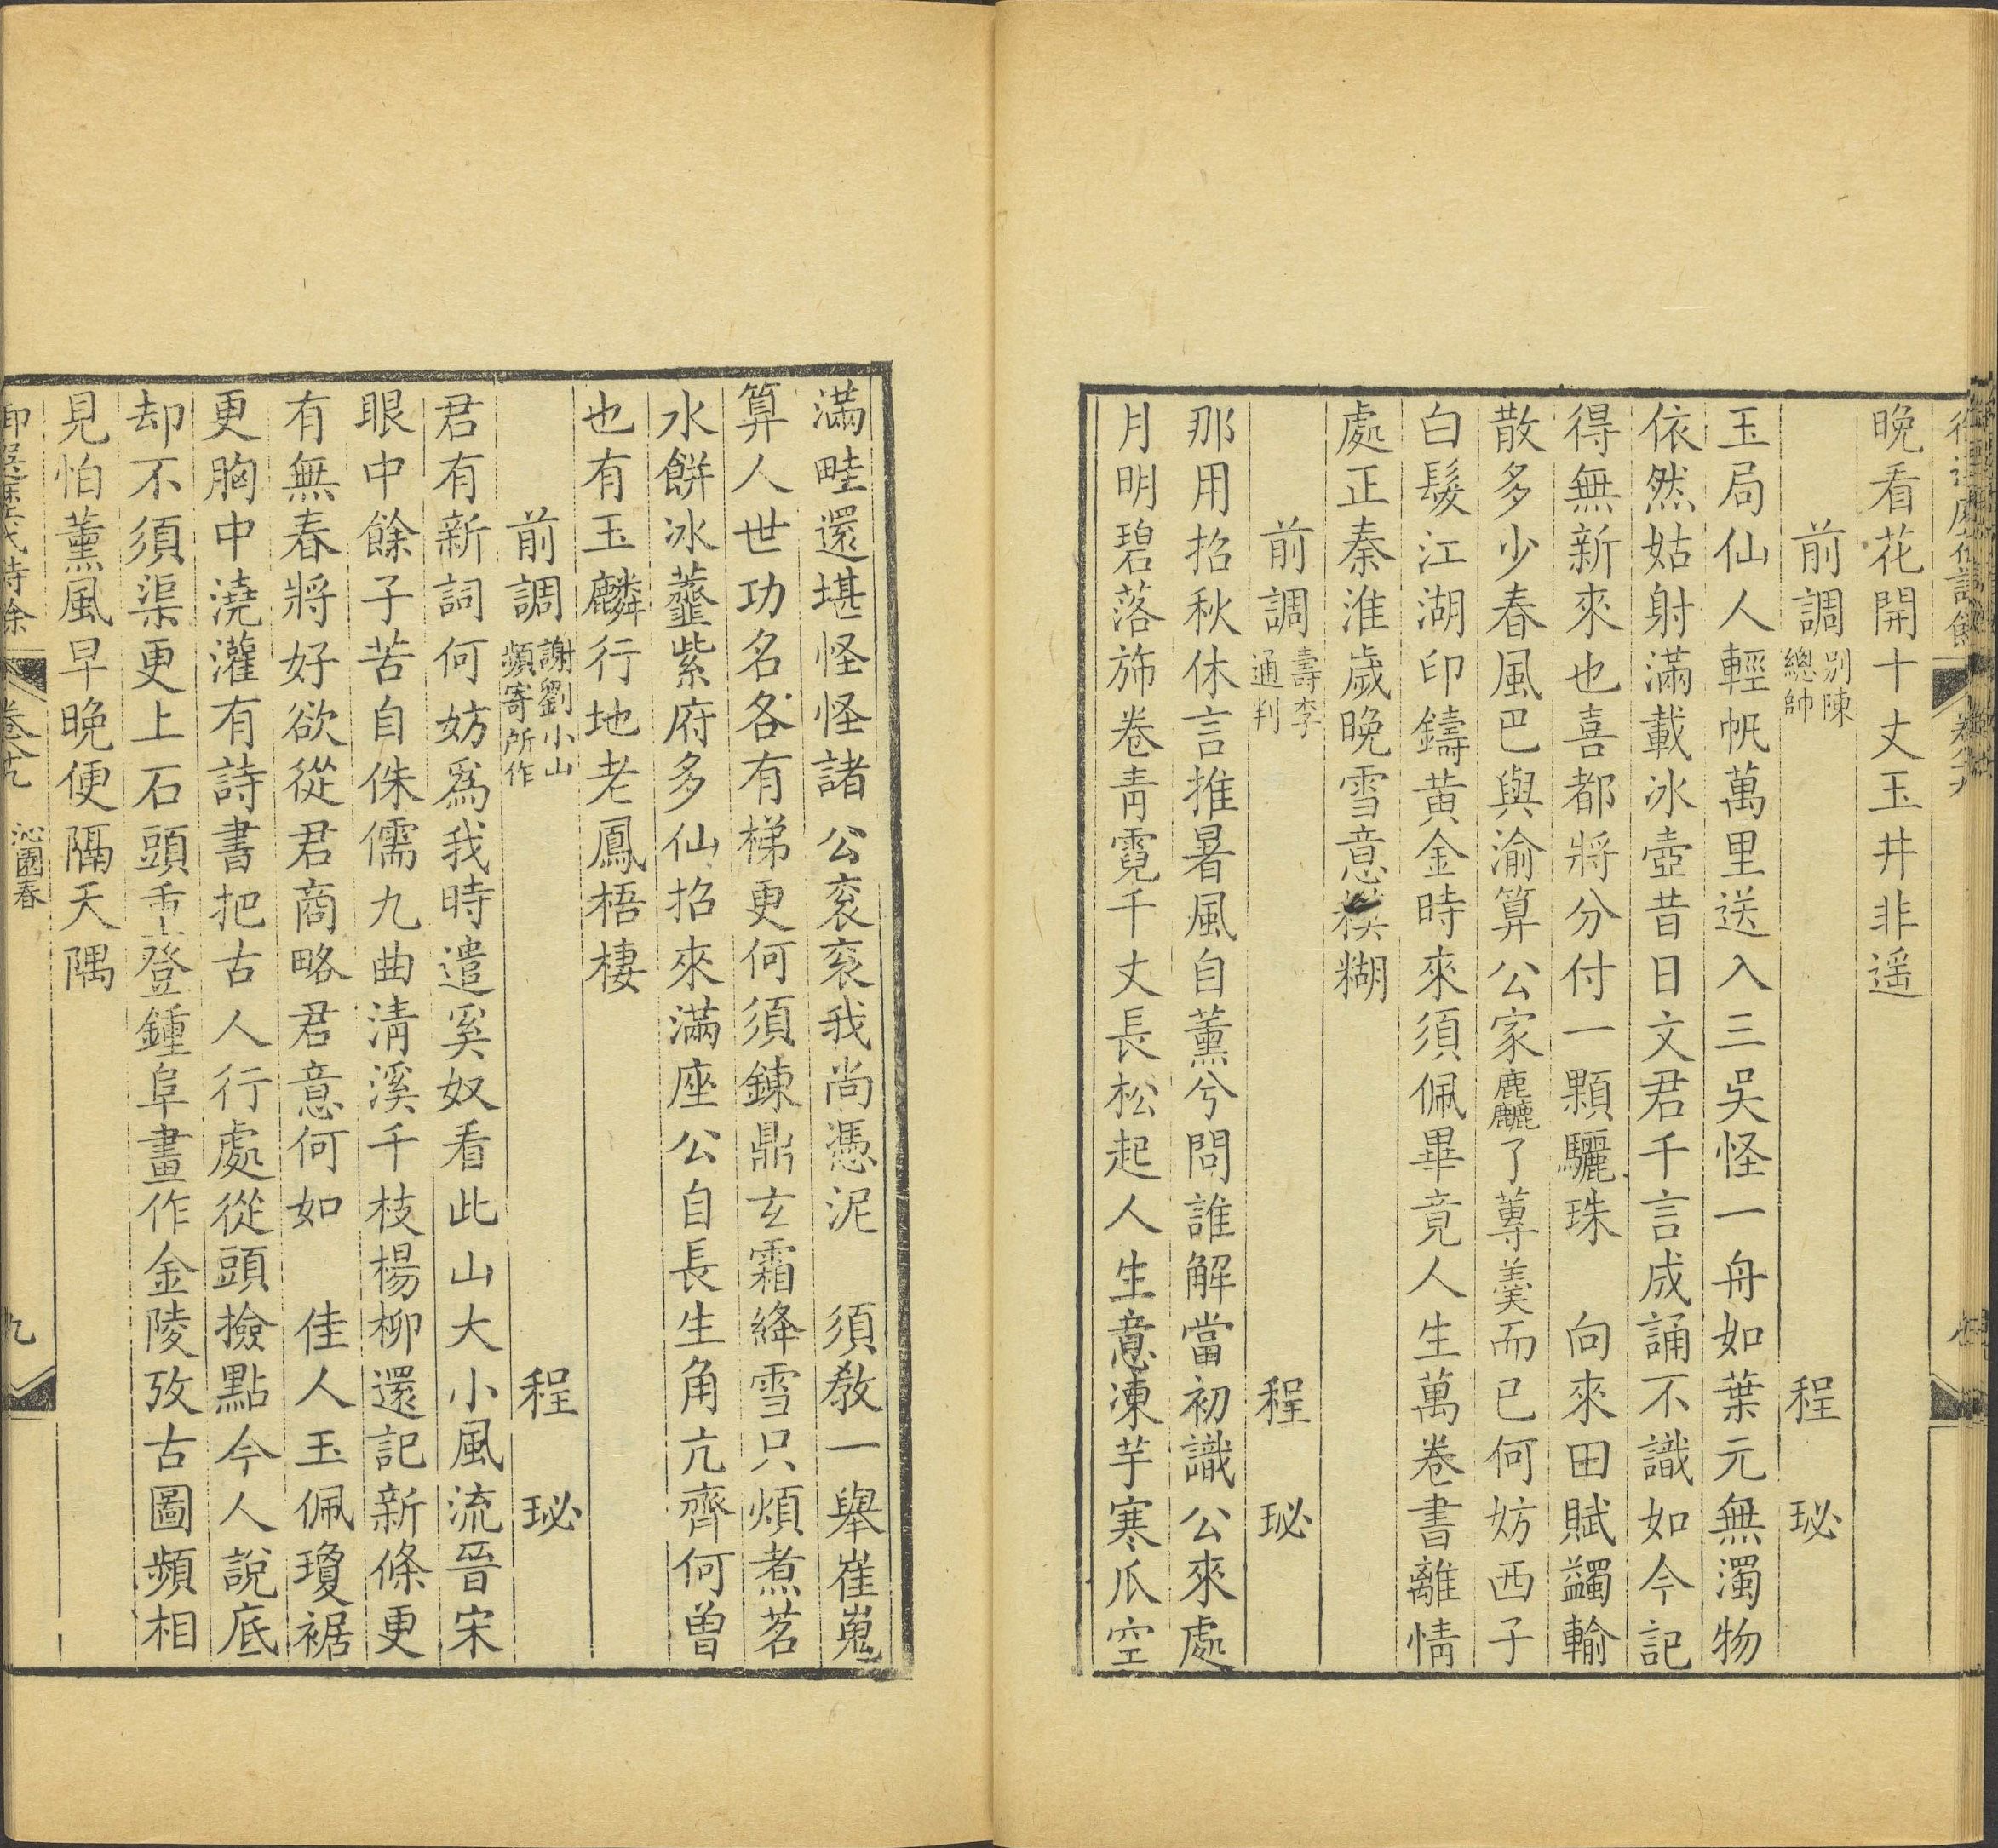 晚看花開十丈玉井非遥
前調 別陳總帥 程珌
玉局仙人輕帆萬里送入三吳怪一舟如葉元無濁物
依然姑射滿載冰壺昔日文君千言成誦不識如今記
得無新來也喜都將分付一顆驪珠 向來田賦蠲輸
散多少春風巴與渝算公家麤了蓴羹而已何妨西子
白髮江湖印鑄黃金時來須佩畢竟人生萬卷書離情
處正秦淮歲晚雪意模糊
前調 壽李通判 程珌
那用招秋休言推暑風自薰兮問誰解當初識公來處
月明碧落斾卷青霓千丈長松起人生意凍芋寒瓜空
滿畦還堪怪怪諸公衮衮我尚憑泥 須教一舉崔嵬
算人世功名各有梯更何須鍊鼎玄霜絳雪只煩煮茗
水餅冰虀紫府多仙招來滿座公自長生角亢齊何曾
也有玉麟行地老鳳梧棲
前調 謝劉小山頻寄所作 程珌
君有新詞何妨爲我時遣奚奴看此山大小風流晉宋
眼中餘子苦自侏儒九曲淸溪千枝楊柳還記新條更
有無春將好欲從君商略君意何如 佳人玉佩瓊裾
更胸中澆灌有詩書把古人行處從頭撿點今人說底
却不須渠更上石頭重登鍾阜畫作金陵攷古圖頻相
見怕薰風早晚便隔天隅
卷 沁園春
九